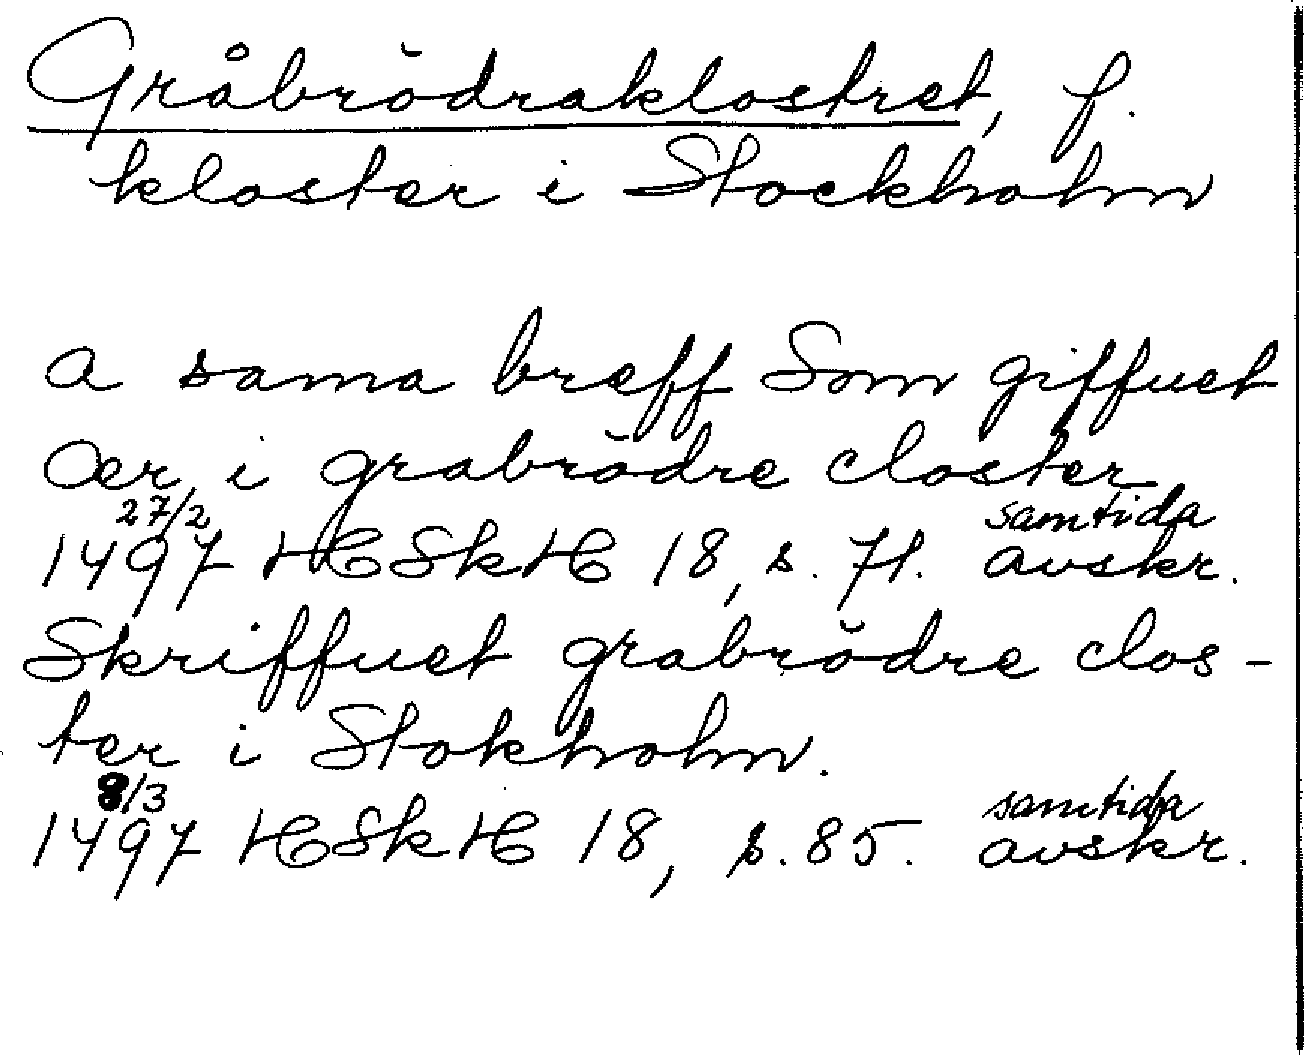 Gråbrödraklostret, f.
kloster i Stockholm
a sama breff Som giffuet
Oer i grabrödre closter
27/2 samtida
1497 HSkH 18, s. 71. avskr.
Skriffuet grabrödre clos-
ter i Stokholm.
8/3 samtida
1497 HSkH 18, s. 85. avskr.